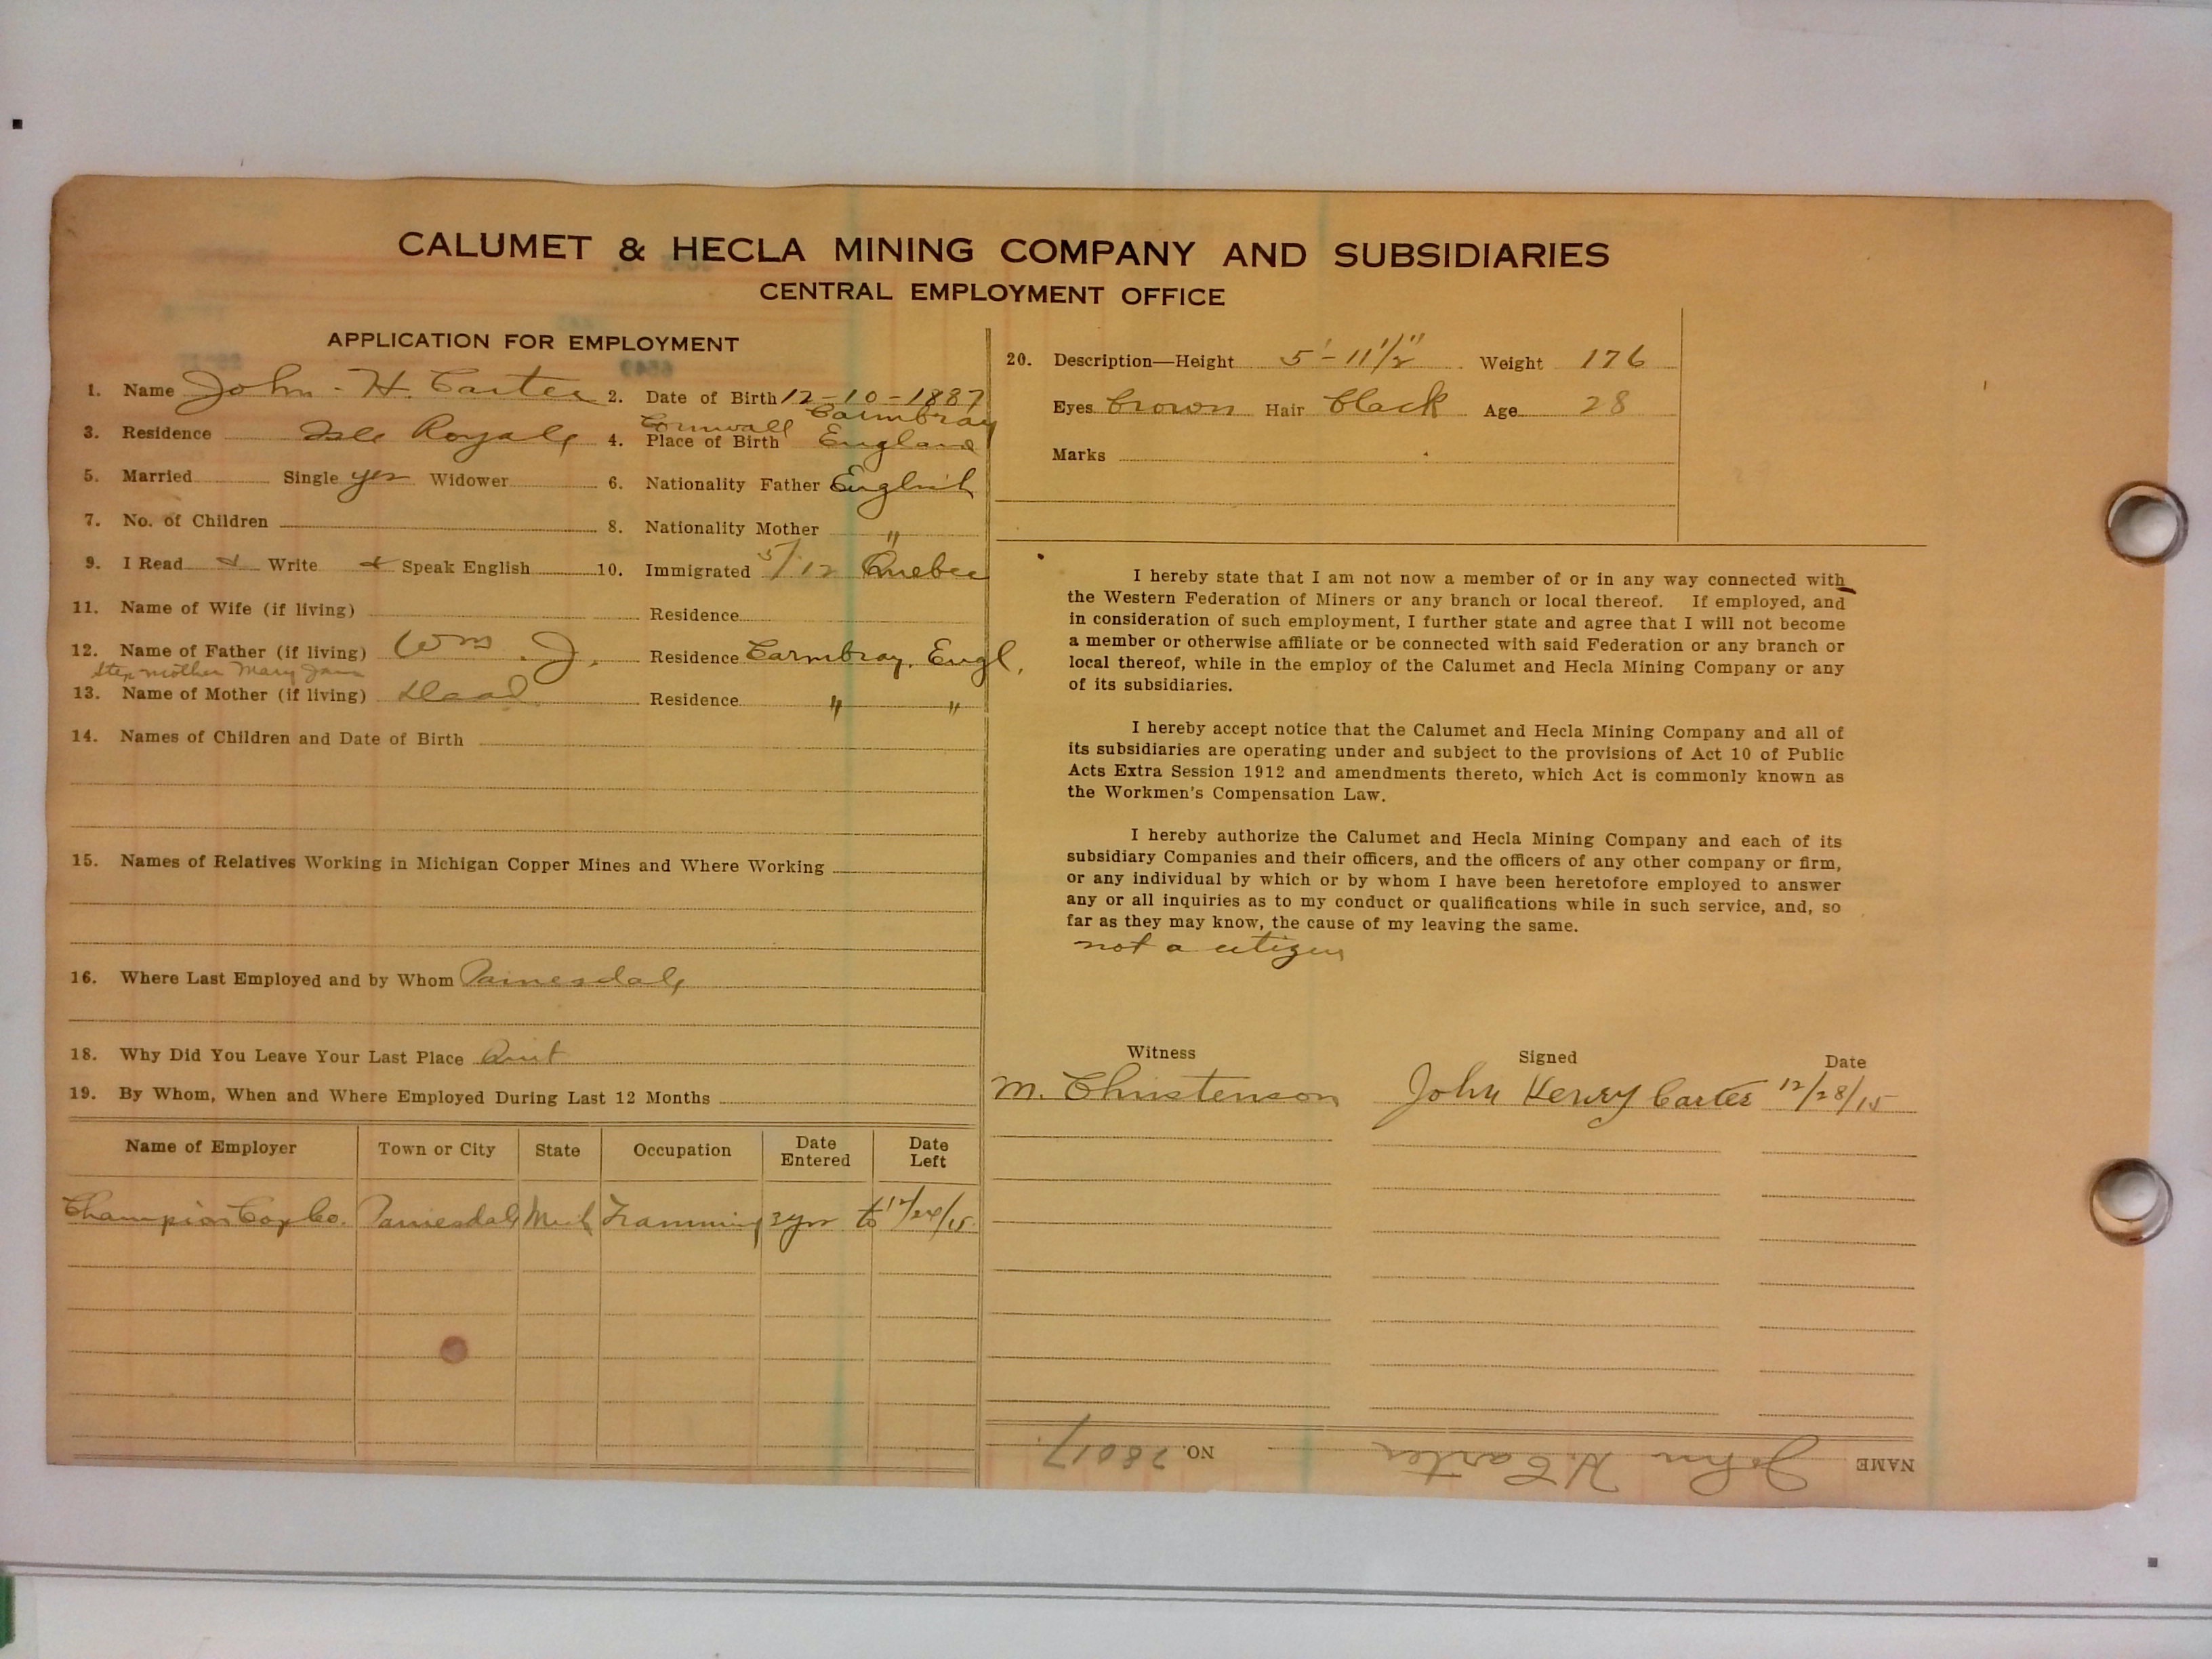 CALUMET & HECLA MINING COMPANY AND SUBSIDIARIES
CENTRAL EMPLOYMENT OFFICE
APPLICATION FOR EMPLOYMENT
1. Name John - H. Carter 2. Date of Birth 12-10-1887
3. Residence Isle Royale 4. Place of Birth Cornwall Carmbray England
5. Married Single yes Widower 6. Nationality Father English
7. No. of Children 8. Nationality Mother "
9. I Read & Write & Speak English 10. Immigrated 5/12 Quebec
11. Name of Wife (if living) Residence
12. Name of Father (if living) Wm. J. Residence Carmbray, Engl.
Step mother Mary Jane
13. Name of Mother (if living) Dead Residence " "
14. Names of Children and Date of Birth
15. Names of Relatives Working in Michigan Copper Mines and Where Working
16. Where Last Employed and by Whom Painesdale
18. Why Did You Leave Your Last Place Quit
19. By Whom, When and Where Employed During Last 12 Months
Name of Employer Town or City State Occupation Date Entered Date Left
Champion Cop Co. Painesdale Mich Tramming 3yrs to 12/24/15
20. Description—Height 5'-11 1/2" Weight 176
Eyes brown Hair black Age 28
Marks
I hereby state that I am not now a member of or in any way connected with
the Western Federation of Miners or any branch or local thereof. If employed, and
in consideration of such employment, I further state and agree that I will not become
a member or otherwise affiliate or be connected with said Federation or any branch or
local thereof, while in the employ of the Calumet and Hecla Mining Company or any
of its subsidiaries.
I hereby accept notice that the Calumet and Hecla Mining Company and all of
its subsidiaries are operating under and subject to the provisions of Act 10 of Public
Acts Extra Session 1912 and amendments thereto, which Act is commonly known as
the Workmen's Compensation Law.
I hereby authorize the Calumet and Hecla Mining Company and each of its
subsidiary Companies and their officers, and the officers of any other company or firm,
or any individual by which or by whom I have been heretofore employed to answer
any or all inquiries as to my conduct or qualifications while in such service, and, so
far as they may know, the cause of my leaving the same.
not a citizen
Witness Signed Date
M. Christenson John Henry Carter 12/28/15
NAME John H. Carter NO. 28017